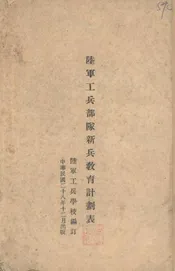 陸軍工兵部隊新兵敎育計劃表
陸軍工兵學校編訂
中華民國二十八年十二月出版